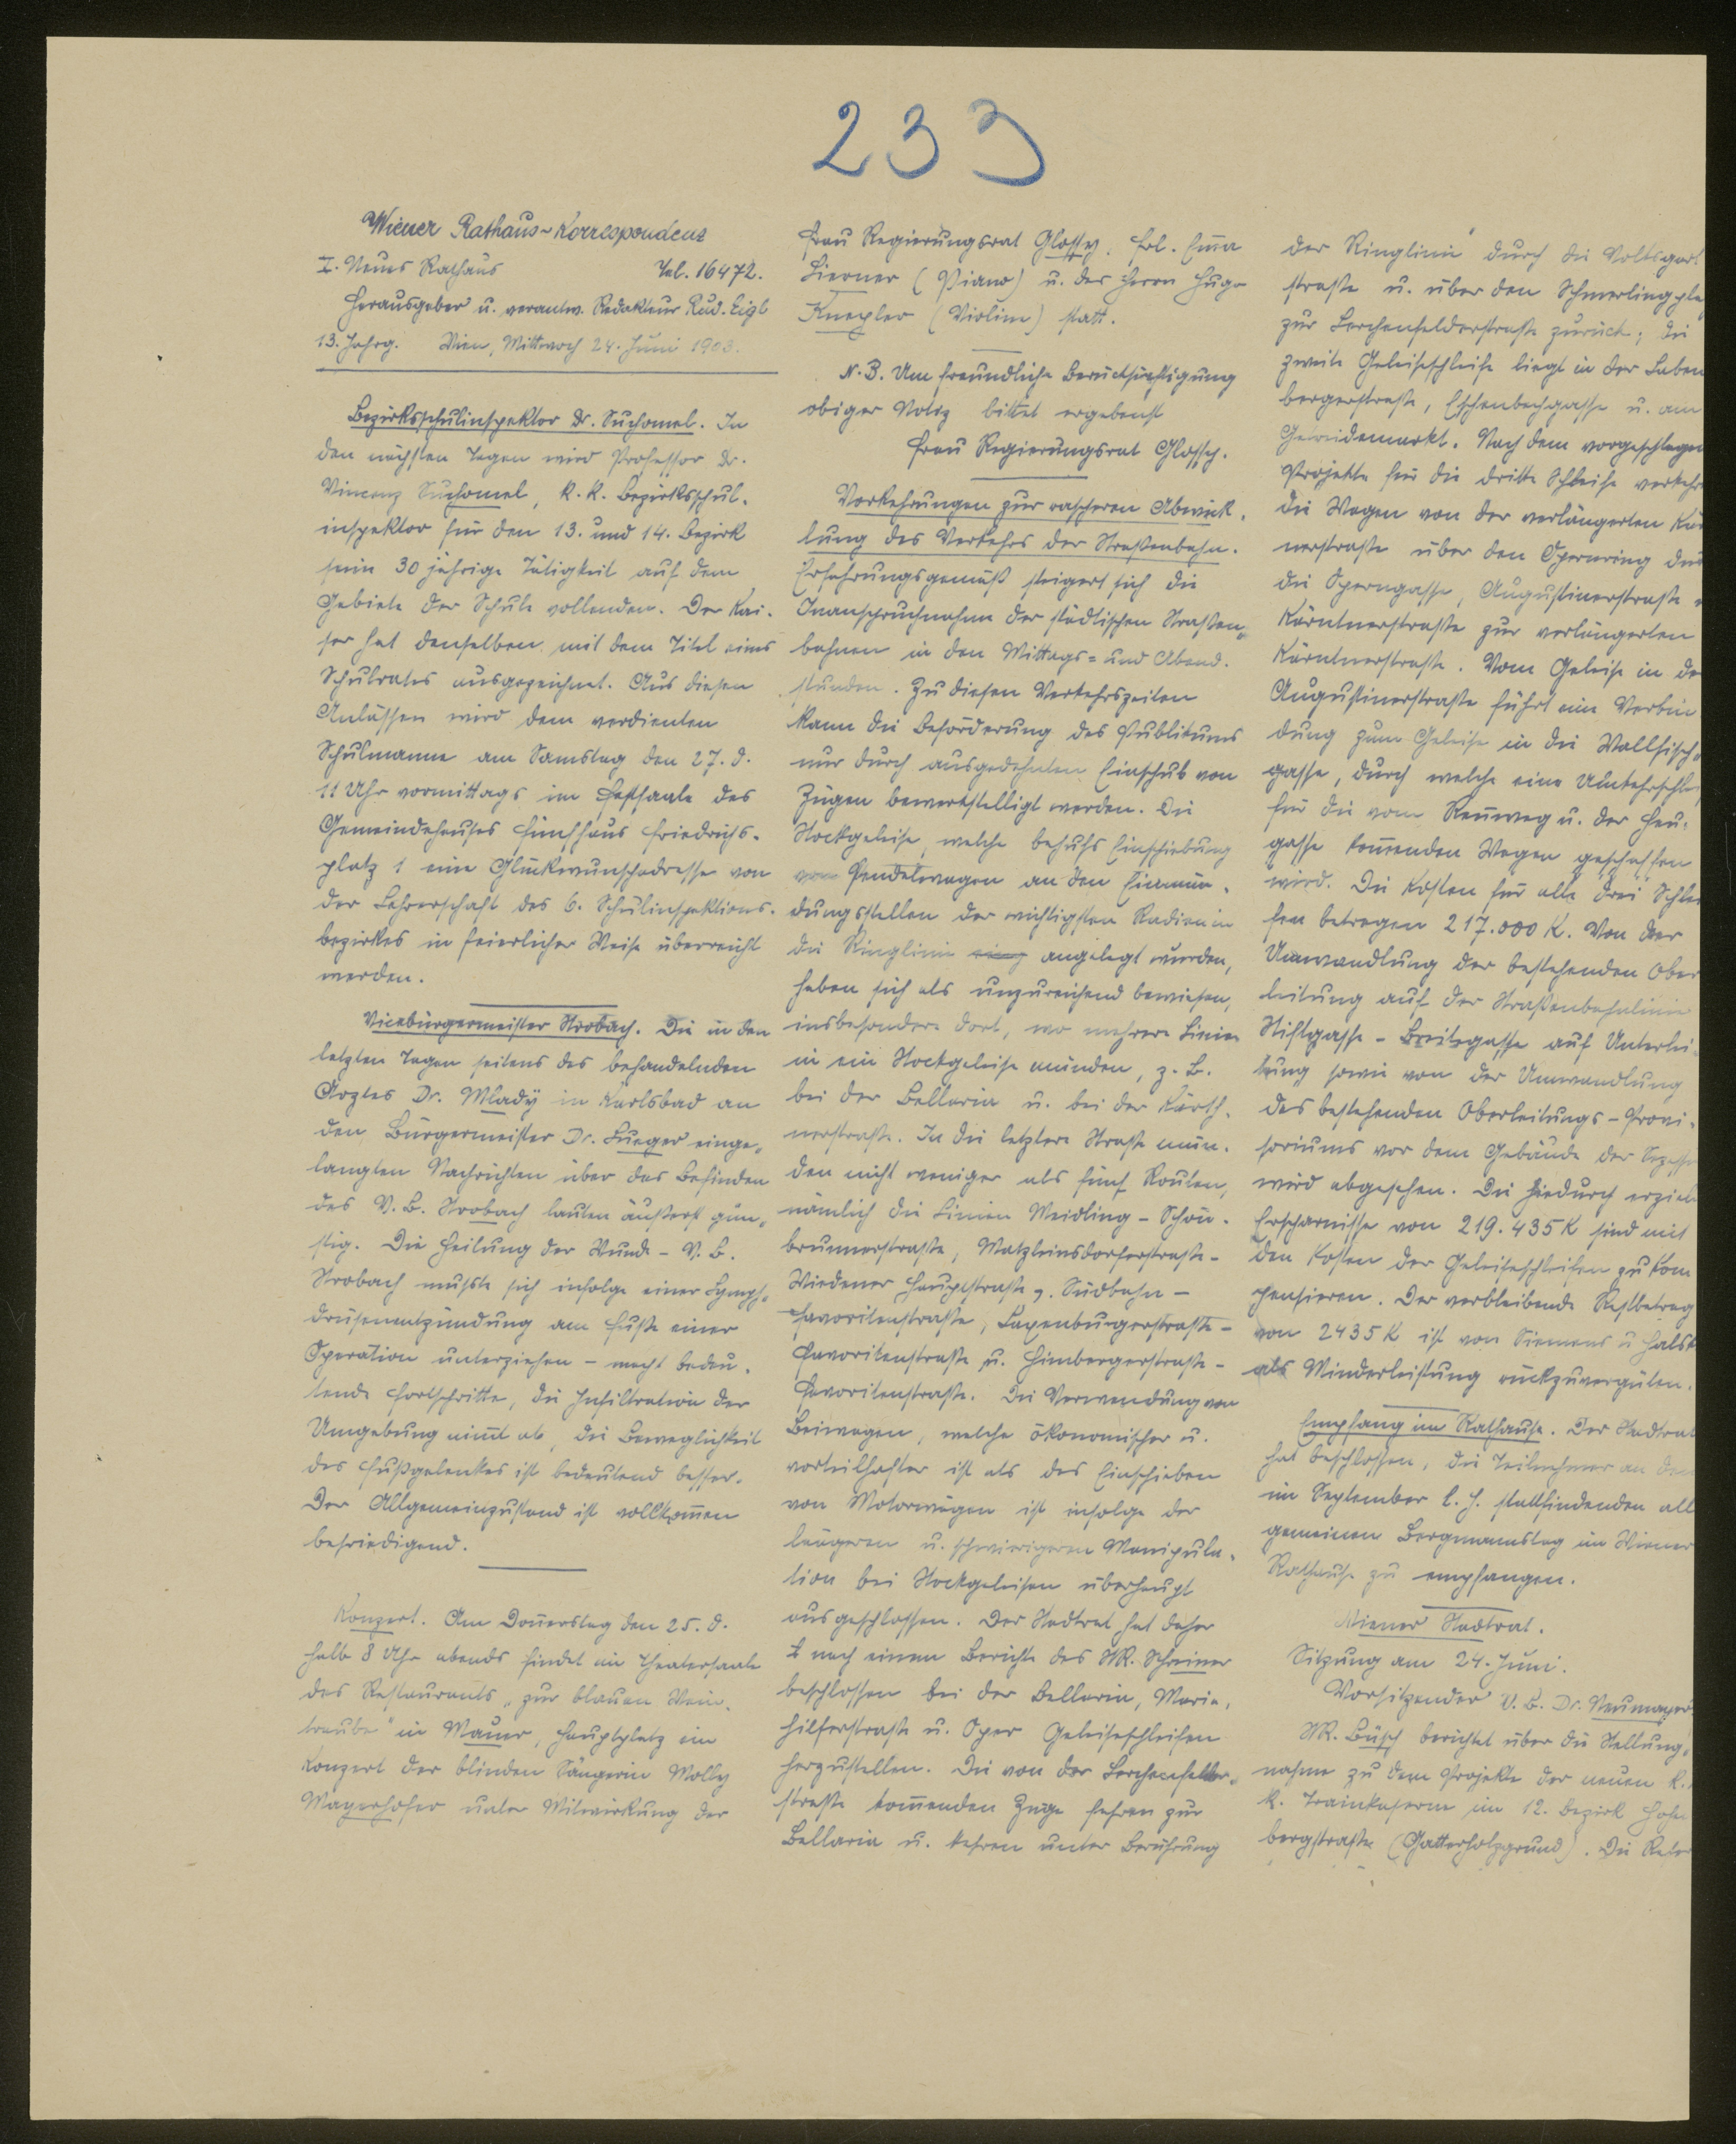 233
Wiener Rathaus-Korrespondenz
I. Neues Rathaus Tel. 16472.
Herausgeber u. verantw. Redakteur Rud. Eigl
13. Jahrg. Wien, Mittwoch 24. Juni 1903.
Bezirksschulinspektor Dr. Suchomel. In
den nächsten Tagen wird Professor Dr.
Vincenz Suchomel, k. k. Bezirksschul-
inspektor für den 13. und 14. Bezirk
seine 30 jährige Tätigkeit auf dem
Gebiete der Schule vollenden. Der Kai-
ser hat denselben mit dem Titel eines
Schulrates ausgezeichnet. Aus diesen
Anlässen wird dem verdienten
Schulmanne am Samstag den 27. d.
11 Uhr vormittags im Festsaale des
Gemeindehauses Fünfhaus Friedrichs-
platz 1 eine Glückwunschadresse von
der Lehrerschaft des 6. Schulinspektions-
bezirkes in feierlicher Weise überreicht
werden.
Vicebürgermeister Strobach. Die in den
letzten Tagen seitens des behandelnden
Arztes Dr. Mladý in Karlsbad an
den Bürgermeister Dr. Lueger einge-
langten Nachrichten über das Befinden
des V. B. Strobach lauten äußerst gün-
stig. Die Heilung der Wunde - V. B.
Strobach mußte sich infolge einer Lymph-
drüsenentzündung am Fuße einer
Operation unterziehen - macht bedeu-
tende Fortschritte, die Infiltration der
Umgebung nim̄t ab, die Beweglichkeit
des Fußgelenkes ist bedeutend besser.
Der Allgemeinzustand ist vollkom̄en
befriedigend.
Konzert. Am Don̄erstag den 25. d.
halb 8 Uhr abends findet im Theatersaale
des Restaurants „zur blauen Wein-
traube" in Mauer, Hauptplatz ein
Konzert der blinden Sängerin Molly
Mayerhofer unter Mitwirkung der
Frau Regierungsrat Glossy, Frl. Em̄a
Lierner (Piano) u. des Herrn Hugo
Knepler (Violine) statt.
N. B. Um freundliche Berücksichtigung
obiger Notiz bittet ergebenst
Frau Regierungsrat Glossy.
Vorkehrungen zur rascheren Abwick-
lung des Verkehrs der Straßenbahn.
Erfahrungsgemäß steigert sich die
Inanspruchnahme der städtischen Straßen-
bahnen in den Mittags- und Abend-
stunden. Zu diesen Verkehrszeiten
kann die Beförderung des Publikums
nur durch ausgedehnten Einschub von
Zügen bewerkstelligt werden. Die
Stockgeleise, welche behufs Einschiebung
von Pendelwagen an den Einmün-
dungsstellen der wichtigsten Radien in
die Ringlinie angelegt wurden,
haben sich als unzureichend bewiesen,
insbesondere dort, wo mehrere Linien
in ein Stockgeleise münden, z. B.
bei der Bellaria u. bei der Kärth-
nerstraße. In die letztere Straße mün-
den nicht weniger als fünf Routen,
nämlich die Linien Meidling - Schön-
brunnerstraße, Matzleinsdorferstraße -
Wiedener Hauptstraße, Südbahn -
Favoritenstraße, Laxenburgerstraße -
Favoritenstraße u. Himbergerstraße -
Favoritenstraße. Die Verwendung von
Beiwagen, welche ökonomischer u.
vorteilhafter ist als das Einschieben
von Motorwägen ist infolge der
längeren u. schwierigeren Manipula-
tion bei Stockgeleisen überhaupt
ausgeschlossen. Der Stadtrat hat daher
nach einem Berichte des StR. Schreiner
beschlossen bei der Bellaria, Maria-
hilferstraße u. Oper Geleiseschleifen
herzustellen. Die von der Lerchenfelder-
straße kom̄enden Züge fahren zur
Bellaria u. kehren unter Berührung
der Ringlinie durch die Volksgart
straße u. über den Schmerlingpla
zur Lerchenfelderstraße zurück; die
zweite Geleiseschleife liegt in der Baben
bergerstraße, Eschenbachgasse u. am
Getreidemarkt. Nach dem vorgeschlagen
Projekte für die dritte Schleife verkehr
die Wagen von der verlängerten Kär
nerstraße über den Opernring dur
die Operngasse, Augustinerstraße
Kärntnerstraße zur verlängerten
Kärntnerstraße. Vom Geleise in de
Augustinerstraße führt eine Verbin
dung zum Geleise in die Wallfisch-
gasse, durch welche eine Umkehrschlei
für die vom Ren̄weg u. der Heu-
gasse kom̄enden Wagen geschaffen
wird. Die Kosten für alle drei Schlei
fen betragen 217.000 K. Von der
Umwandlung der bestehenden Ober
leitung auf der Straßenbahnlinie
Stiftgasse - Breitegasse auf Unterlei
tung sowie von der Umwandlung
des bestehenden Oberleitungs-Provi-
soriums vor dem Gebäude der Sezessi
wird abgesehen. Die hiedurch erziel
Ersparnisse von 219.435 K sind mit
den Kosten der Geleiseschleifen zu kom
pensieren. Der verbleibende Restbetrag
von 2435 K ist von Siemens u Halsk
als Minderleistung rückzuvergüten.
Empfang im Rathause. Der Stadtrat
hat beschlossen, die Teilnehmer an dem
im September l. J. stattfindenden all
gemeinen Bergmannstag im Wiener
Rathause zu empfangen.
Wiener Stadtrat.
Sitzung am 24. Juni.
Vorsitzender V. B. Dr. Neumayer
StR. Büsch berichtet über die Stellung-
nahme zu dem Projekte der neuen k.
k. Trainkaserne im 12. Bezirk Hohen
bergstraße (Gatterholzgrund). Die Refer